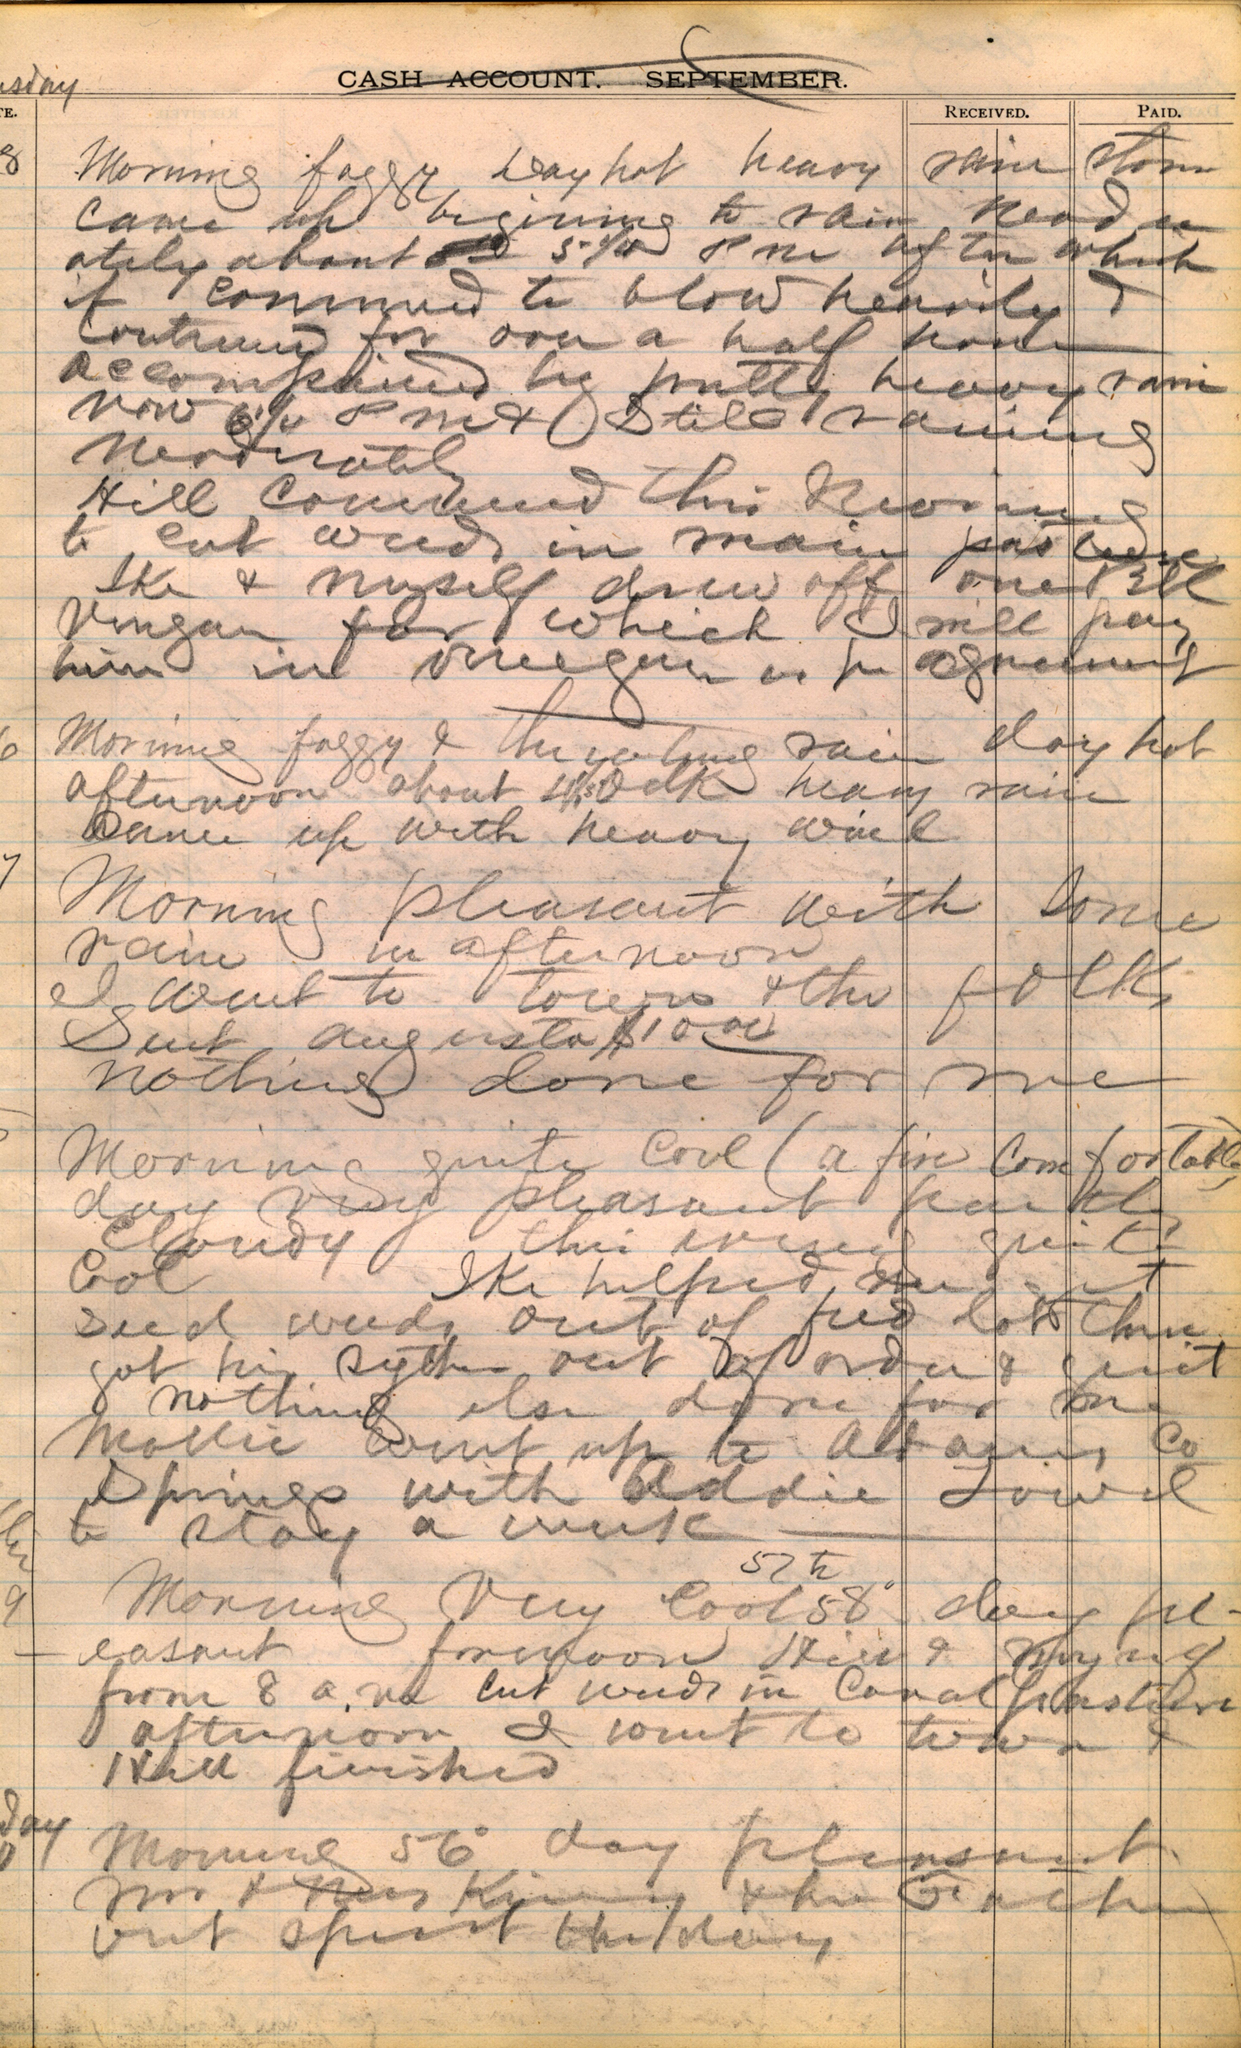 CASH ACCOUNT. SEPTEMBER.
RECEIVED. PAID.
Morning foggy day hot heavy rain storm
came up begining to rain
ately about P m after which
it commed to blow heavily &
continued for over a half hour
accompained by pretty heavy rain
now P m & Still raining
Moderately
Hill Commend this Morning
to cut weeds in main pasture
Ike & myself drew off one Bll
Vinegar for which I will pay
him in vinegar as per agreement
Morning foggy & threatning rain day hot
afternoon about heavy rain
Came up with heavy wind
7
Morning pleasant with some
rain in afternoon
I went to town & the folks
Sent Augusta $10.00
nothing done for me
Morning quite Cool (a fire comfortable)
day very pleasant partly
Cloudy this evening quite
Cool Ike helped cut
seed weeds out of feed lot then
got his sythe out of order & quit
nothing else done for me
Mollie went up to Adams Co
Springs with Addie
to stay a week
57 to
9 Morning Very Cool 58° day pl-
easant forenoon Hill & myself
from 8 a.m. cut weeds in Canal pasture
afternoon I went to town &
Hill finished
day
Morning 56° day pleasant
Mr & Mrs & her
out spent the day